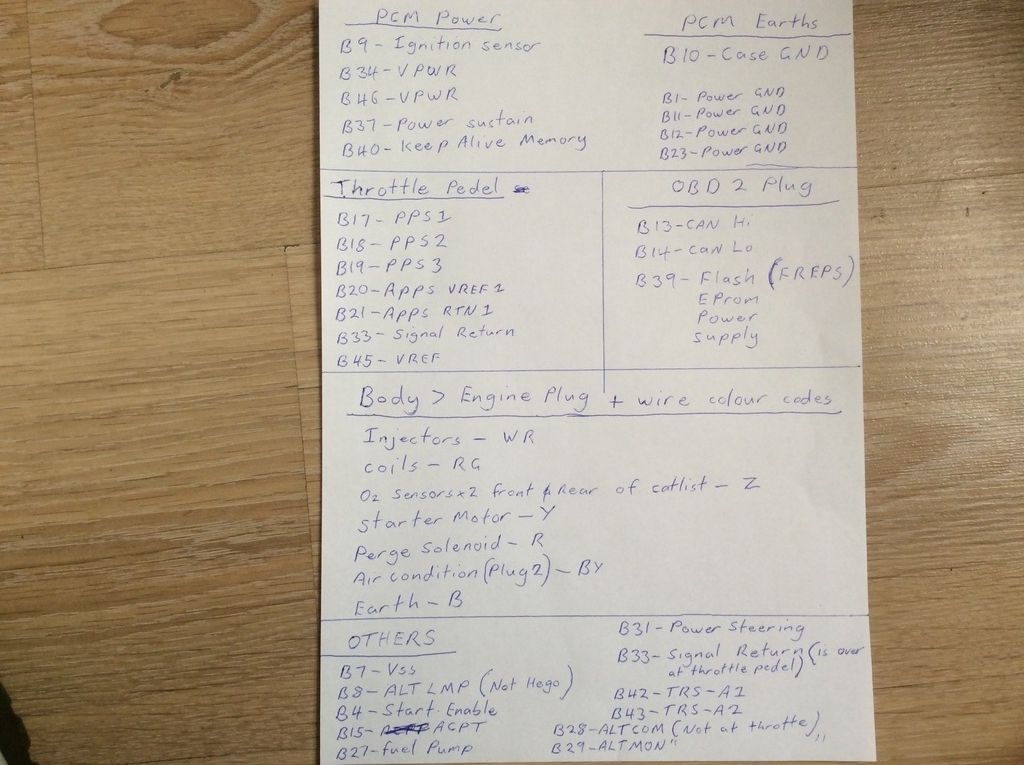 PCM Power
B9 - Ignition sensor
B34 - VPWR
B46 - VPWR
B37 - Power sustain
B40 - Keep Alive Memory
PCM Earths
B10 - Case GND
B1 - Power GND
B11 - Power GND
B12 - Power GND
B23 - Power GND
Throttle Pedel
B17 - PPS1
B18 - PPS2
B19 - PPS3
B20 - Apps VREF1
B21 - Apps RTN1
B33 - Signal Return
B45 - VREF
OBD 2 Plug
B13 - CAN Hi
B14 - CAN Lo
B39 - Flash (FREPS)
EProm
Power
Supply
Body > Engine Plug + wire colour codes
Injectors - WR
coils - RG
O2 Sensors x2 front & Rear of catlist - Z
Starter Motor - Y
Perge Solenoid - R
Air condition (Plug 2) - BY
Earth - B
OTHERS
B7 - Vss
B8 - ALT LMP (Not Hego)
B4 - Start Enable
B15 - ACPT
B27 - fuel Pump
B31 - Power Steering
B33 - Signal Return (is over
at throttle pedel)
B42 - TRS - A1
B43 - TRS - A2
B28 - ALTCOM (Not at throtte)
B29 - ALTMON " "